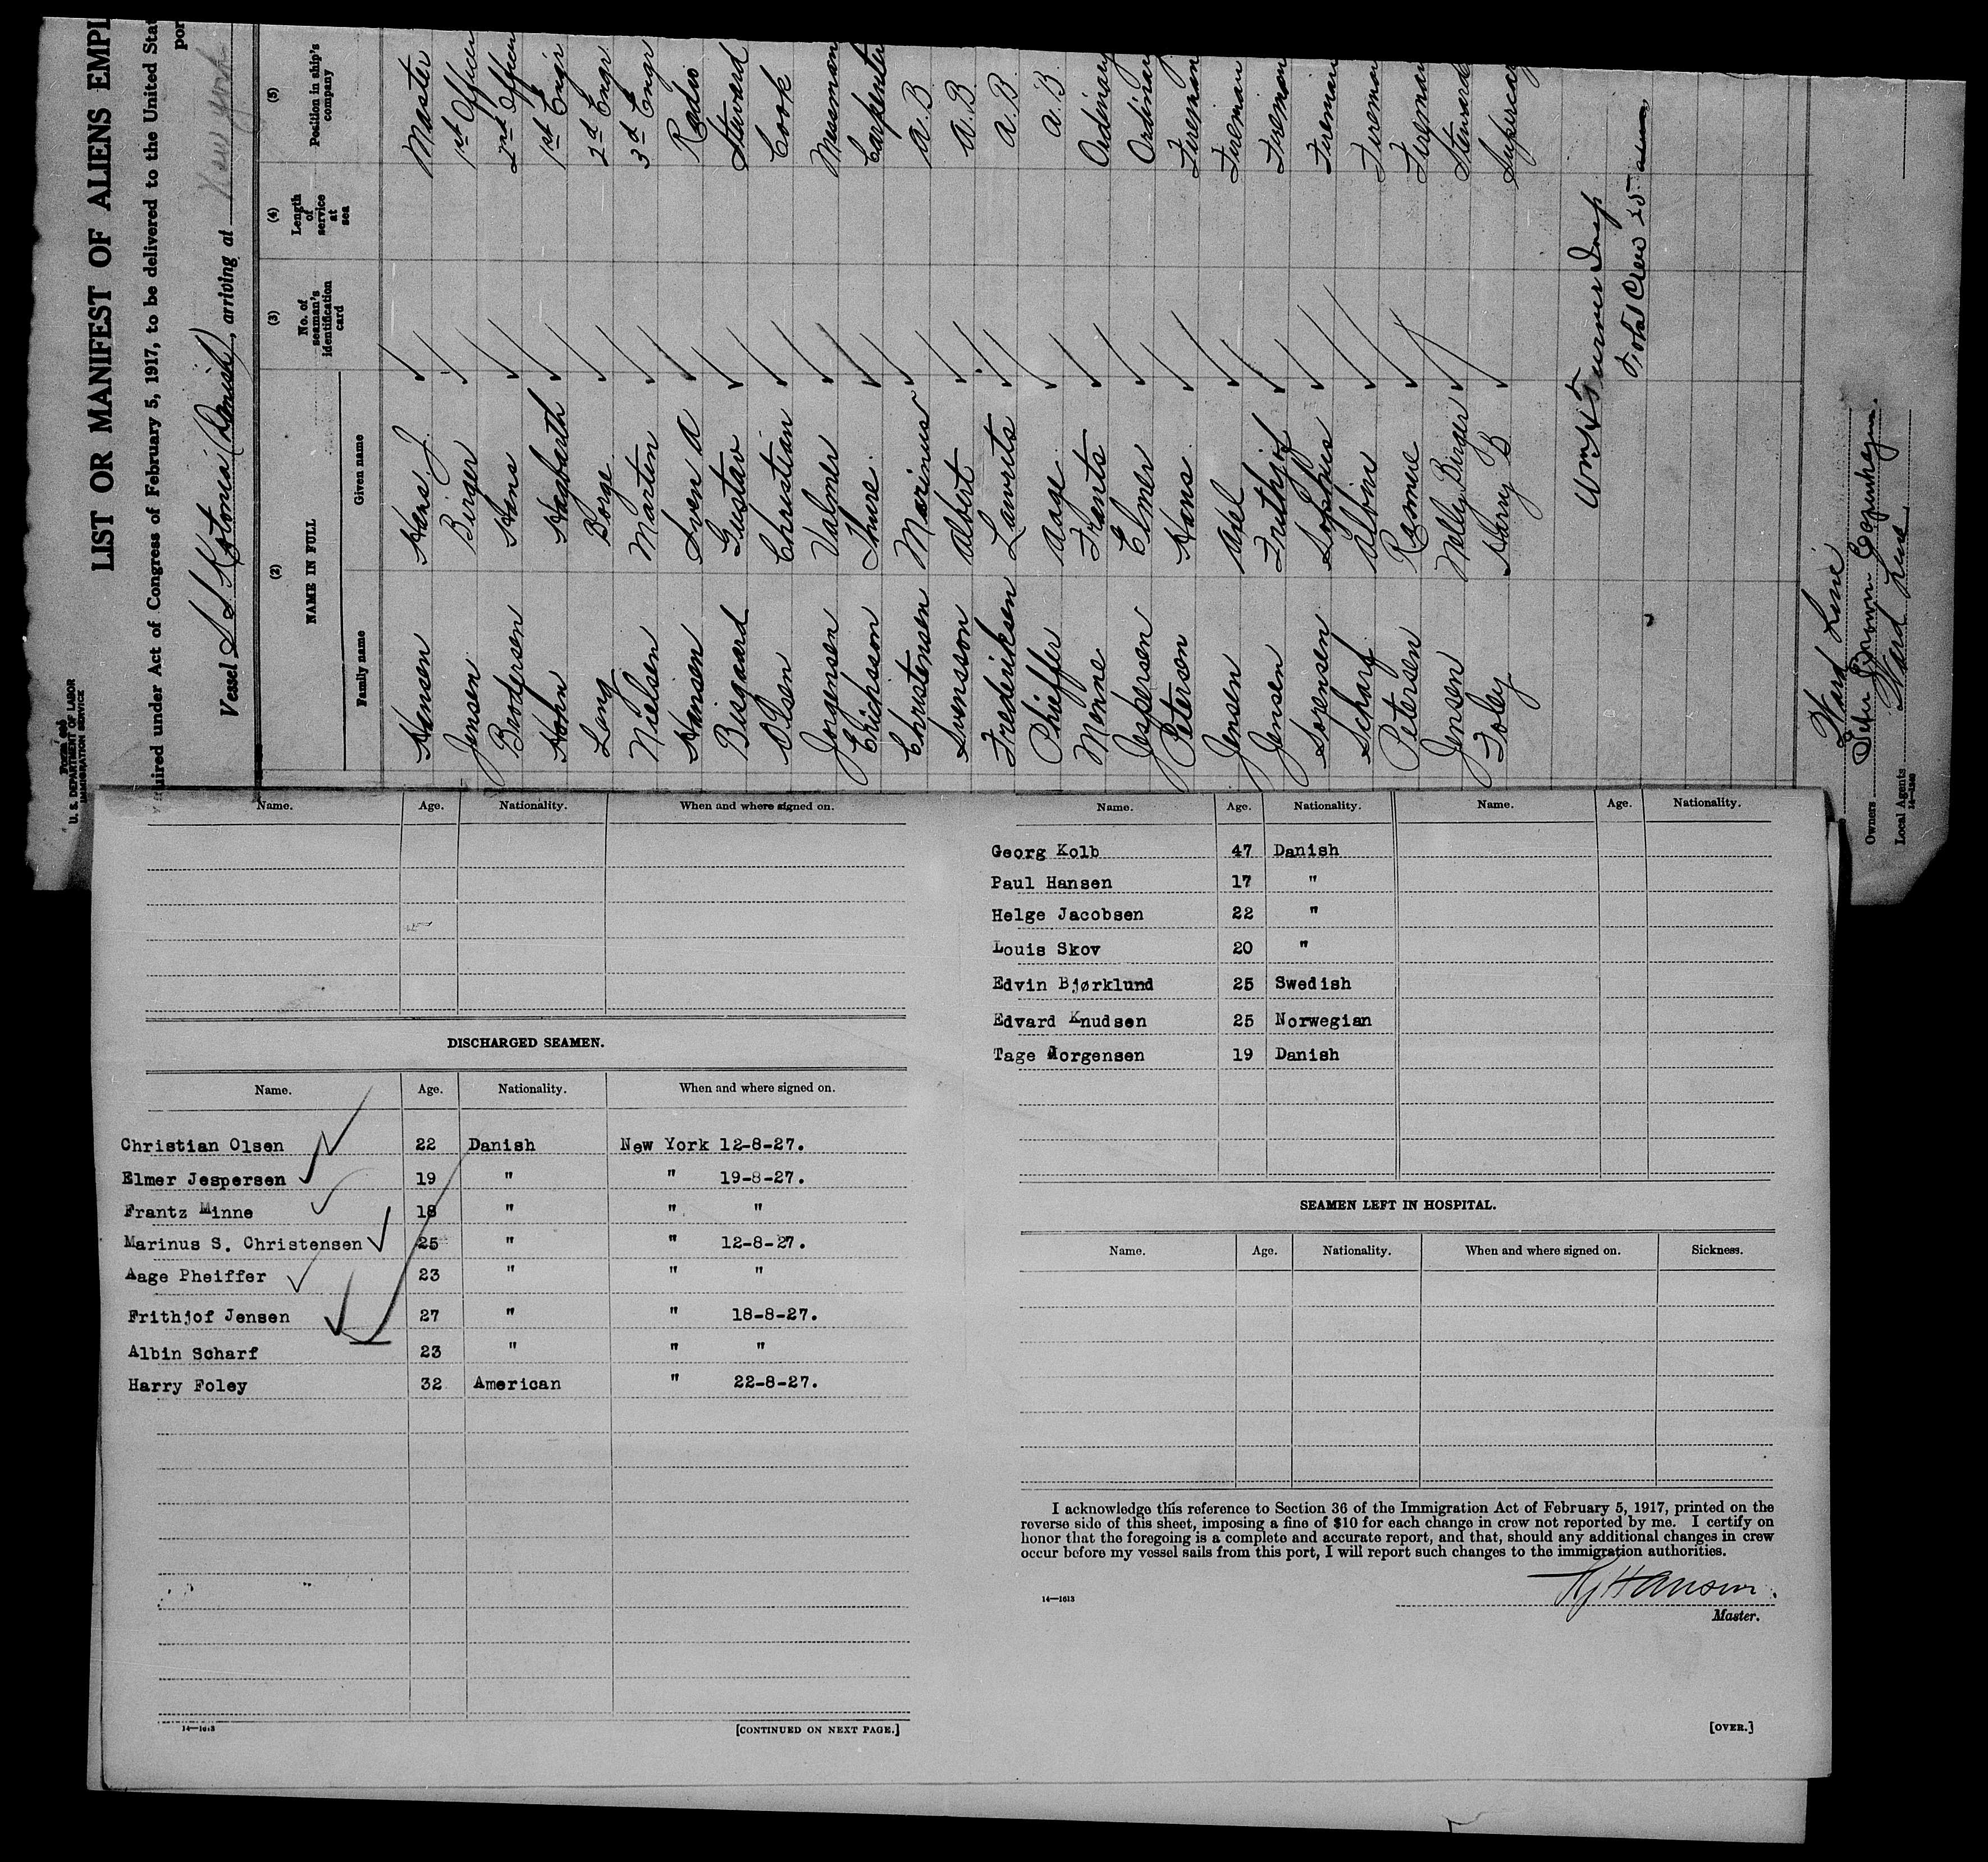 Form 680
U. S. DEPARTMENT OF LABOR
IMMIGRATION SERVICE
LIST OR MANIFEST OF ALIENS EMPL
quired under Act of Congress of February 5, 1917, to be delivered to the United Stat
por
Vessel S S Estonia (Danish), arriving at New York
(2) (3) (4) (5)
NAME IN FULL No. of seaman's identification card Length of service at sea Position in ship's company
Family name Given name
Hansen Hans J. Master
Jensen Birger 1st Officer
Brodersen Hans 2nd Officer
Hohn Hagbarth 1st Engr
Lang Borge 2d Engr
Nielsen Martin 3d Engr
Hansen Sven A Radio
Bisgaard Gustav Steward
Olsen Christian Cook
Jorgensen Valmer Messman
Erichsson Thure Carpenter
Christensen Marinus A.B.
Svensson Albert A.B.
Frederiksen Lavrits A.B.
Pheiffer Aage A.B.
Menne Frants Ordinary
Jespersen Elmer Ordinary
Petersen Hans Fireman
Jensen Axel Fireman
Jensen Frithjof Fireman
Sorensen Sophus Fireman
Scharf Albin Fireman
Petersen Romeo Fireman
Jensen Nelly Birger Steward
Foley Harry B Supercargo
Wm H Turner Insp
Total Crew 25
Ward Line
Owners Copenhagen.
Local Agents Ward Line
14—1240
Name. Age. Nationality. When and where signed on.
DISCHARGED SEAMEN.
Name. Age. Nationality. When and where signed on.
Christian Olsen 22 Danish New York 12-8-27.
Elmer Jespersen 19 " " 19-8-27.
Frantz Minne 18 " " "
Marinus S. Christensen 25 " " 12-8-27.
Aage Pheiffer 23 " " "
Frithjof Jensen 27 " " 18-8-27.
Albin Scharf 23 " " "
Harry Foley 32 American " 22-8-27.
14—1613
[CONTINUED ON NEXT PAGE.]
Name. Age. Nationality. Name. Age. Nationality.
Georg Kolb 47 Danish
Paul Hansen 17 "
Helge Jacobsen 22 "
Louis Skov 20 "
Edvin Bjørklund 25 Swedish
Edvard Knudsen 25 Norwegian
Tage Jorgensen 19 Danish
SEAMEN LEFT IN HOSPITAL.
Name. Age. Nationality. When and where signed on. Sickness.
I acknowledge this reference to Section 36 of the Immigration Act of February 5, 1917, printed on the
reverse side of this sheet, imposing a fine of $10 for each change in crew not reported by me. I certify on
honor that the foregoing is a complete and accurate report, and that, should any additional changes in crew
occur before my vessel sails from this port, I will report such changes to the immigration authorities.
HJHansen.
Master.
14—1613
[OVER.]